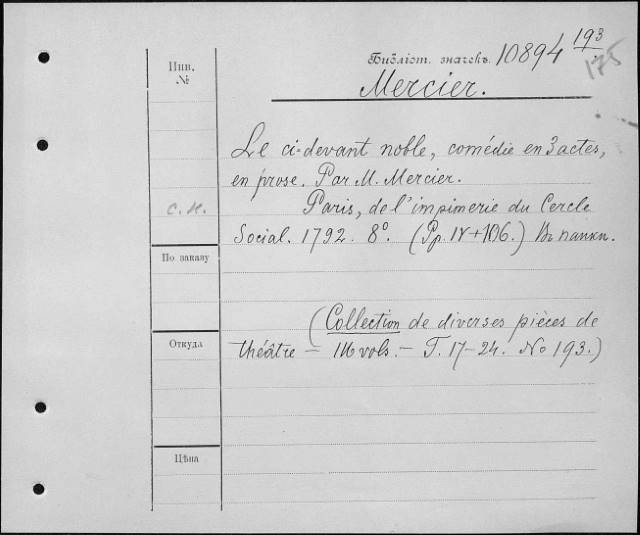 Инв.
№
Библіот. значекъ 10894 193
175
Mercier.
Le ci-devant noble, comédie en 3 actes,
en prose. Par M. Mercier.
с. н.
Paris, de l'impimerie du Cercle
Social. 1792. 8°. (Pp. IV+106.) Въ папки.
По заказу
(Collection de diverses pièces de
Откуда
théâtre — 116 vols. — T. 17–24. No 193.)
Цѣна